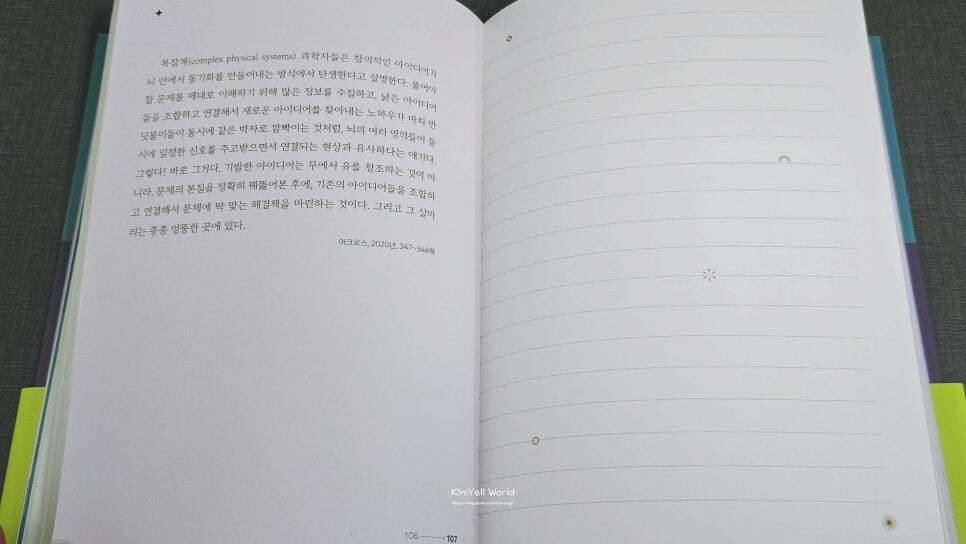 복잡계(complex physical systems) 과학자들은 창의적인 아이디어가
뇌 안에서 동기화를 만들어내는 방식에서 탄생한다고 설명한다. 풀어야
할 문제를 제대로 이해하기 위해 많은 정보를 수집하고, 낡은 아이디어
들을 조합하고 연결해서 새로운 아이디어를 찾아내는 노하우가 마치 반
딧불이들이 동시에 같은 박자로 깜빡이는 것처럼, 뇌의 여러 영역들이 동
시에 일정한 신호를 주고받으면서 연결되는 현상과 유사하다는 얘기다.
그렇다! 바로 그거다. 기발한 아이디어는 무에서 유를 창조하는 것이 아
니라, 문제의 본질을 정확히 꿰뚫어본 후에, 기존의 아이디어들을 조합하
고 연결해서 문제에 딱 맞는 해결책을 마련하는 것이다. 그리고 그 실마
리는 종종 엉뚱한 곳에 있다.
어크로스, 2020년, 347~348쪽
KimYell World
106 107